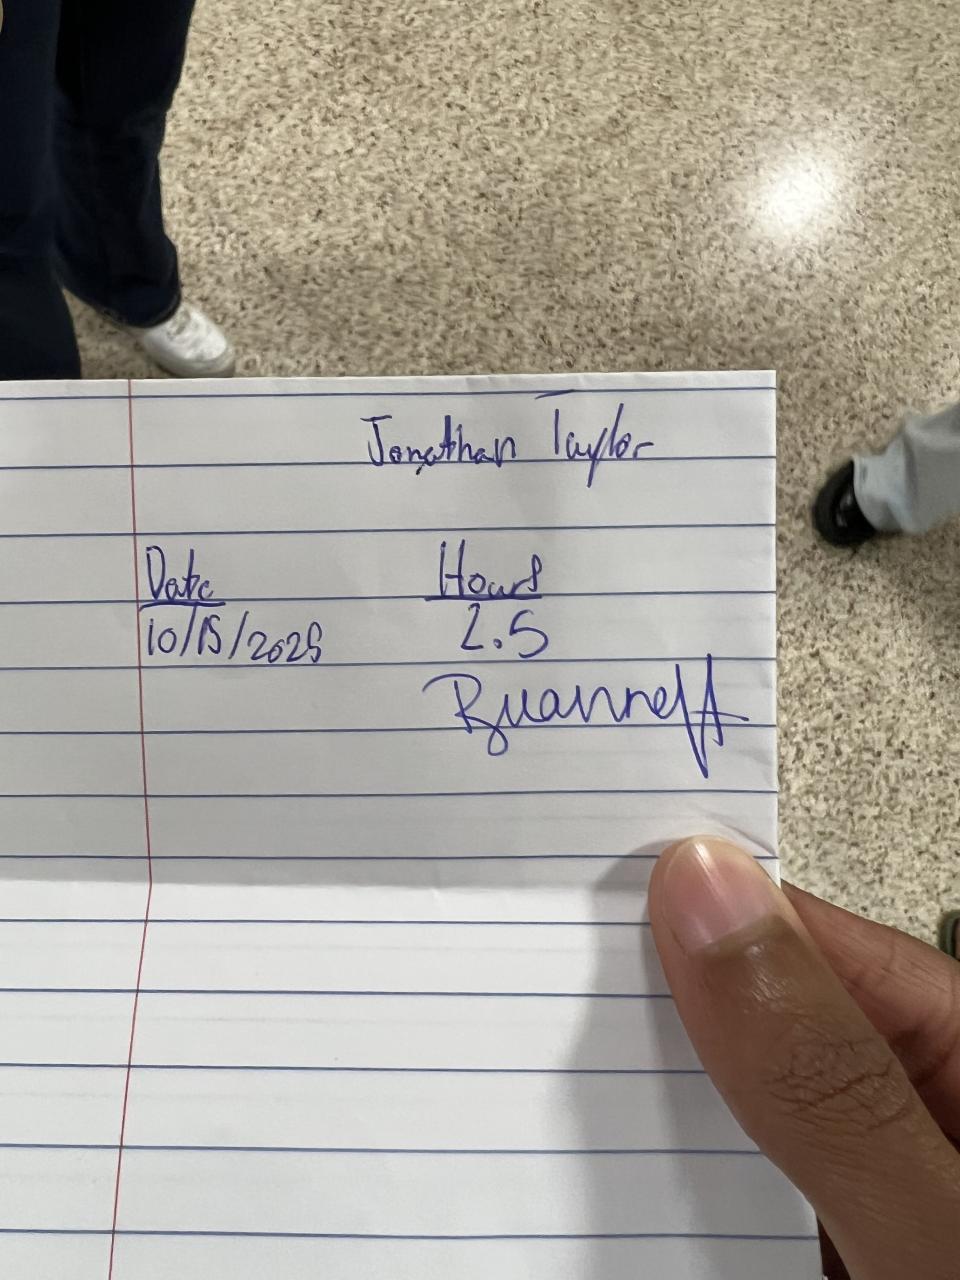 Jonathan Taylor
Date Hours
10/15/2025 2.5